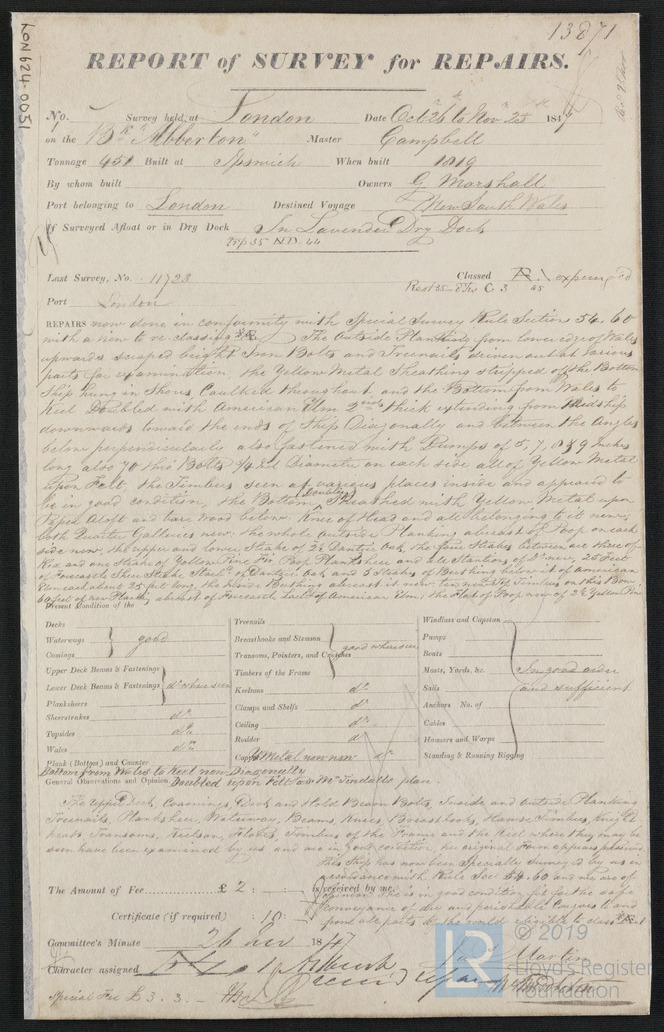 13871
LON624-0051
REPORT of SURVEY for REPAIRS.
No. Survey held at London Date Oct 26th to Nov 25th 1847
on the Bk "Abberton" Master Campbell
Tonnage 451 Built at Ipswich When built 1819
By whom built Owners G Marshall
Port belonging to London Destined Voyage New South Wales
If Surveyed Afloat or in Dry Dock In Lavender Dry Dock
Last Survey, No. 11723 Classed expired
Port London
REPAIRS now done in conformity with Special Survey Rule Section 54. 60
with a view to re classing The Outside Planking from lower edge of Wales
upwards scraped bright Iron Bolts and Treenails driven out at various
parts for examination, the Yellow Metal Sheathing stripped off the Bottom
Ship hung in Shores, Caulked throughout and the Bottom from Wales to
Keel Doubled with American Elm 2 inch thick extending from Midship
downwards toward the ends of Ship Diagonally and between the Angles
below perpendicularly also fastened with Dumps of 5, 7, 8 & 9 Inches
long also 70 thro Bolts 3/4 Diameter on each side all of Yellow Metal
upon Felt, the Timbers seen at various places inside and appeared to
be in good condition, the Bottom Doubling Sheathed with Yellow Metal upon
Paper Aloft and bare wood below. Knee of Head and all belonging to it new,
both Quarter Galleries new, the whole outside Planking abreast of Poop on each
side new, the upper and lower Strake of 2½ Dantzic Oak, the four Strakes between are three of
and one Strake of Yellow Pine Poop Planksheer and all Stanchions of Do new, 25 Feet
of Forecastle Sheer Strake of Dantzic Oak and 5 Strakes of Berthing below it of American
Elm each about 25 feet long, the Hawse Bushing abreast it new
abreast of Forecastle of American Elm, the Flat of Poop new of 2½ Yellow Pine
Present Condition of the
Decks
Waterways good
Comings
Upper Deck Beams & Fastenings
Lower Deck Beams & Fastenings do where seen
Planksheers
Sheerstrakes do
Topsides do
Wales do
Plank (Bottom) and Counter
Bottom from Wales to Keel now Diagonally
Treenails
Breasthooks and Stemson
Transoms, Pointers, and Crutches good where seen
Timbers of the Frame
Keelsons do
Clamps and Shelfs do
Ceiling do
Rudder do
Copper Y Metal now new do
Windlass and Capstan
Pumps
Boats
Masts, Yards, &c. In good order
Sails and sufficient
Anchors No. of
Cables
Hawsers and Warps
Standing & Running Rigging
General Observations and Opinion, Doubled upon Felt on Mr Tindalls plan.
The Upper Deck, Coamings, Deck and Hold Beam Bolts, Inside and Outside Planking
Treenails, Planksheer, Waterway, Beams, Knees, Breasthooks, Hawse Timbers, Knight
heads Transoms, Keelson, Timbers of the Frame and the Keel where they may be
seen have been examined by us and are in good condition, her original Form appears preserved
this Ship has now been Specially Surveyed by us in
accordance with Rule Sec 54. 60 and we are of
opinion She is in good condition fit for the safe
conveyance of dry and perishable Cargoes to and
from all parts of the world eligible to class
The Amount of Fee £ 2 : - : - is received by me,
Certificate (if required) : 10 : -
Committee's Minute 26 1847
Character assigned
Special Fee £ 3 . 3 . -
Martin
LR
© 2019
Lloyd's Register
Foundation